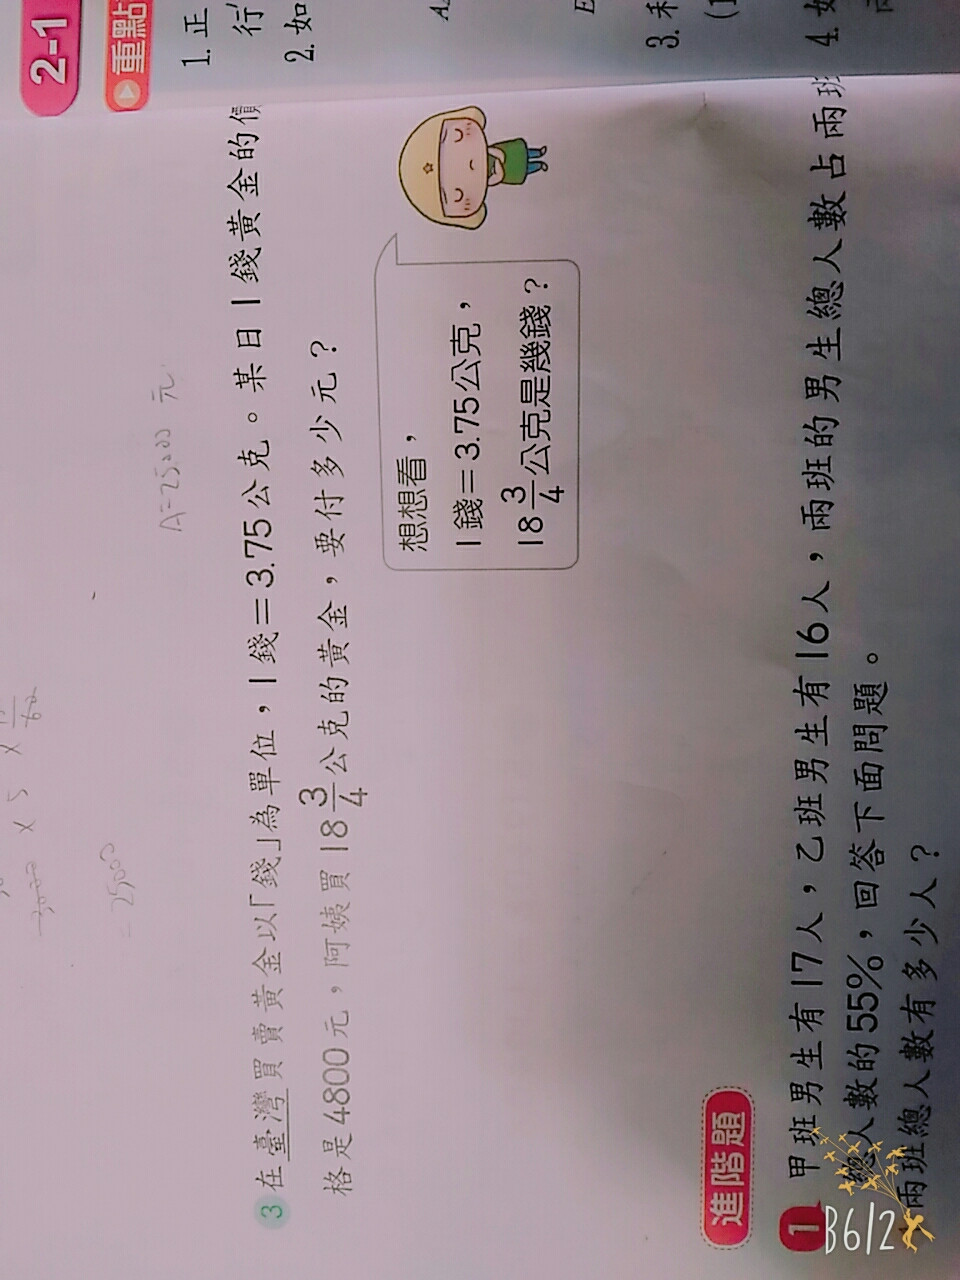 A=25000元
=25000
3 在臺灣買賣黃金以「錢」為單位，1錢＝3.75公克。某日1錢黃金的價
格是4800元，阿姨買18 3/4公克的黃金，要付多少元？
想想看，
1錢＝3.75公克，
18 3/4公克是幾錢？
進階題
1 甲班男生有17人，乙班男生有16人，兩班的男生總人數占兩班
總人數的55%，回答下面問題。
兩班總人數有多少人？
2-1
重點
1. 正
行
2. 如
3.
(1
4. 如
B612